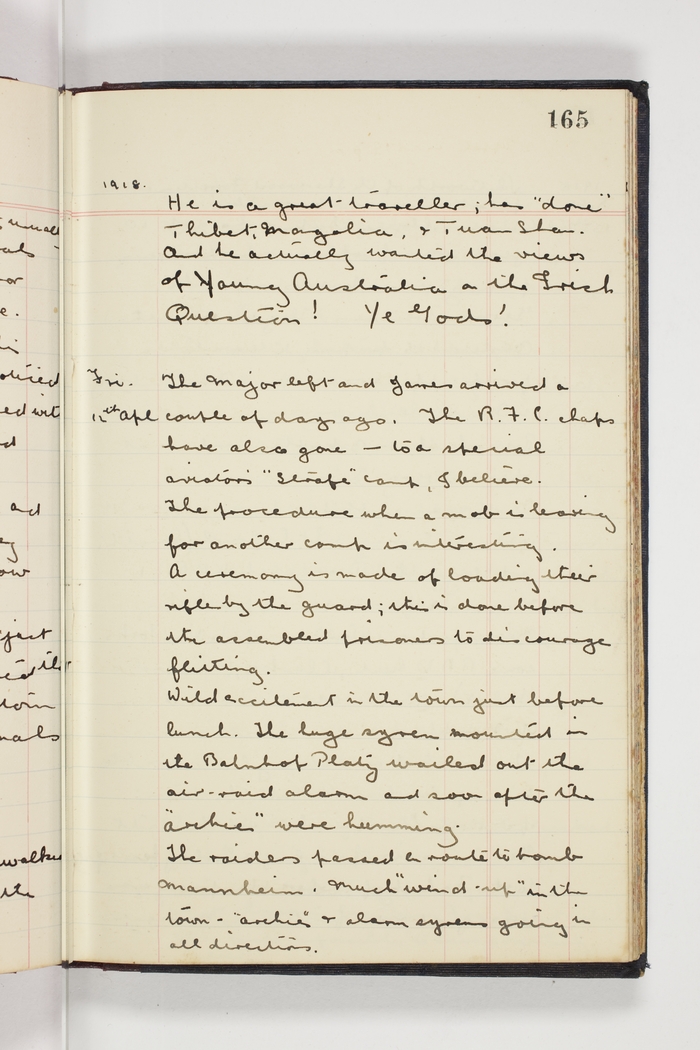 165
1918.
He is a great traveller; has "done"
Thibet, Magolia, & Tuan Shan.
And he actually wanted the views
of Young Australia on the Irish
Question! Ye Gods!
Fri. The Major left and James arrived a
12th Apl couple of days ago. The R.F.C. chaps
have also gone – to a special
aviators "Strafe" camp, I believe.
The procedure when a mob is leaving
for another camp is interesting.
A ceremony is made of loading their
rifles by the guard; this is done before
the assembled prisoners to discourage
flitting.
Wild excitement in the town just before
lunch. The huge syren mounted in
the Bahnhof Platz wailed out the
air-raid alarm and soon after the
"archies" were humming.
The raiders passed en route to bomb
Mannheim. Much "wind-up" in the
town – "archies" & alarm syrens going in
all directions.